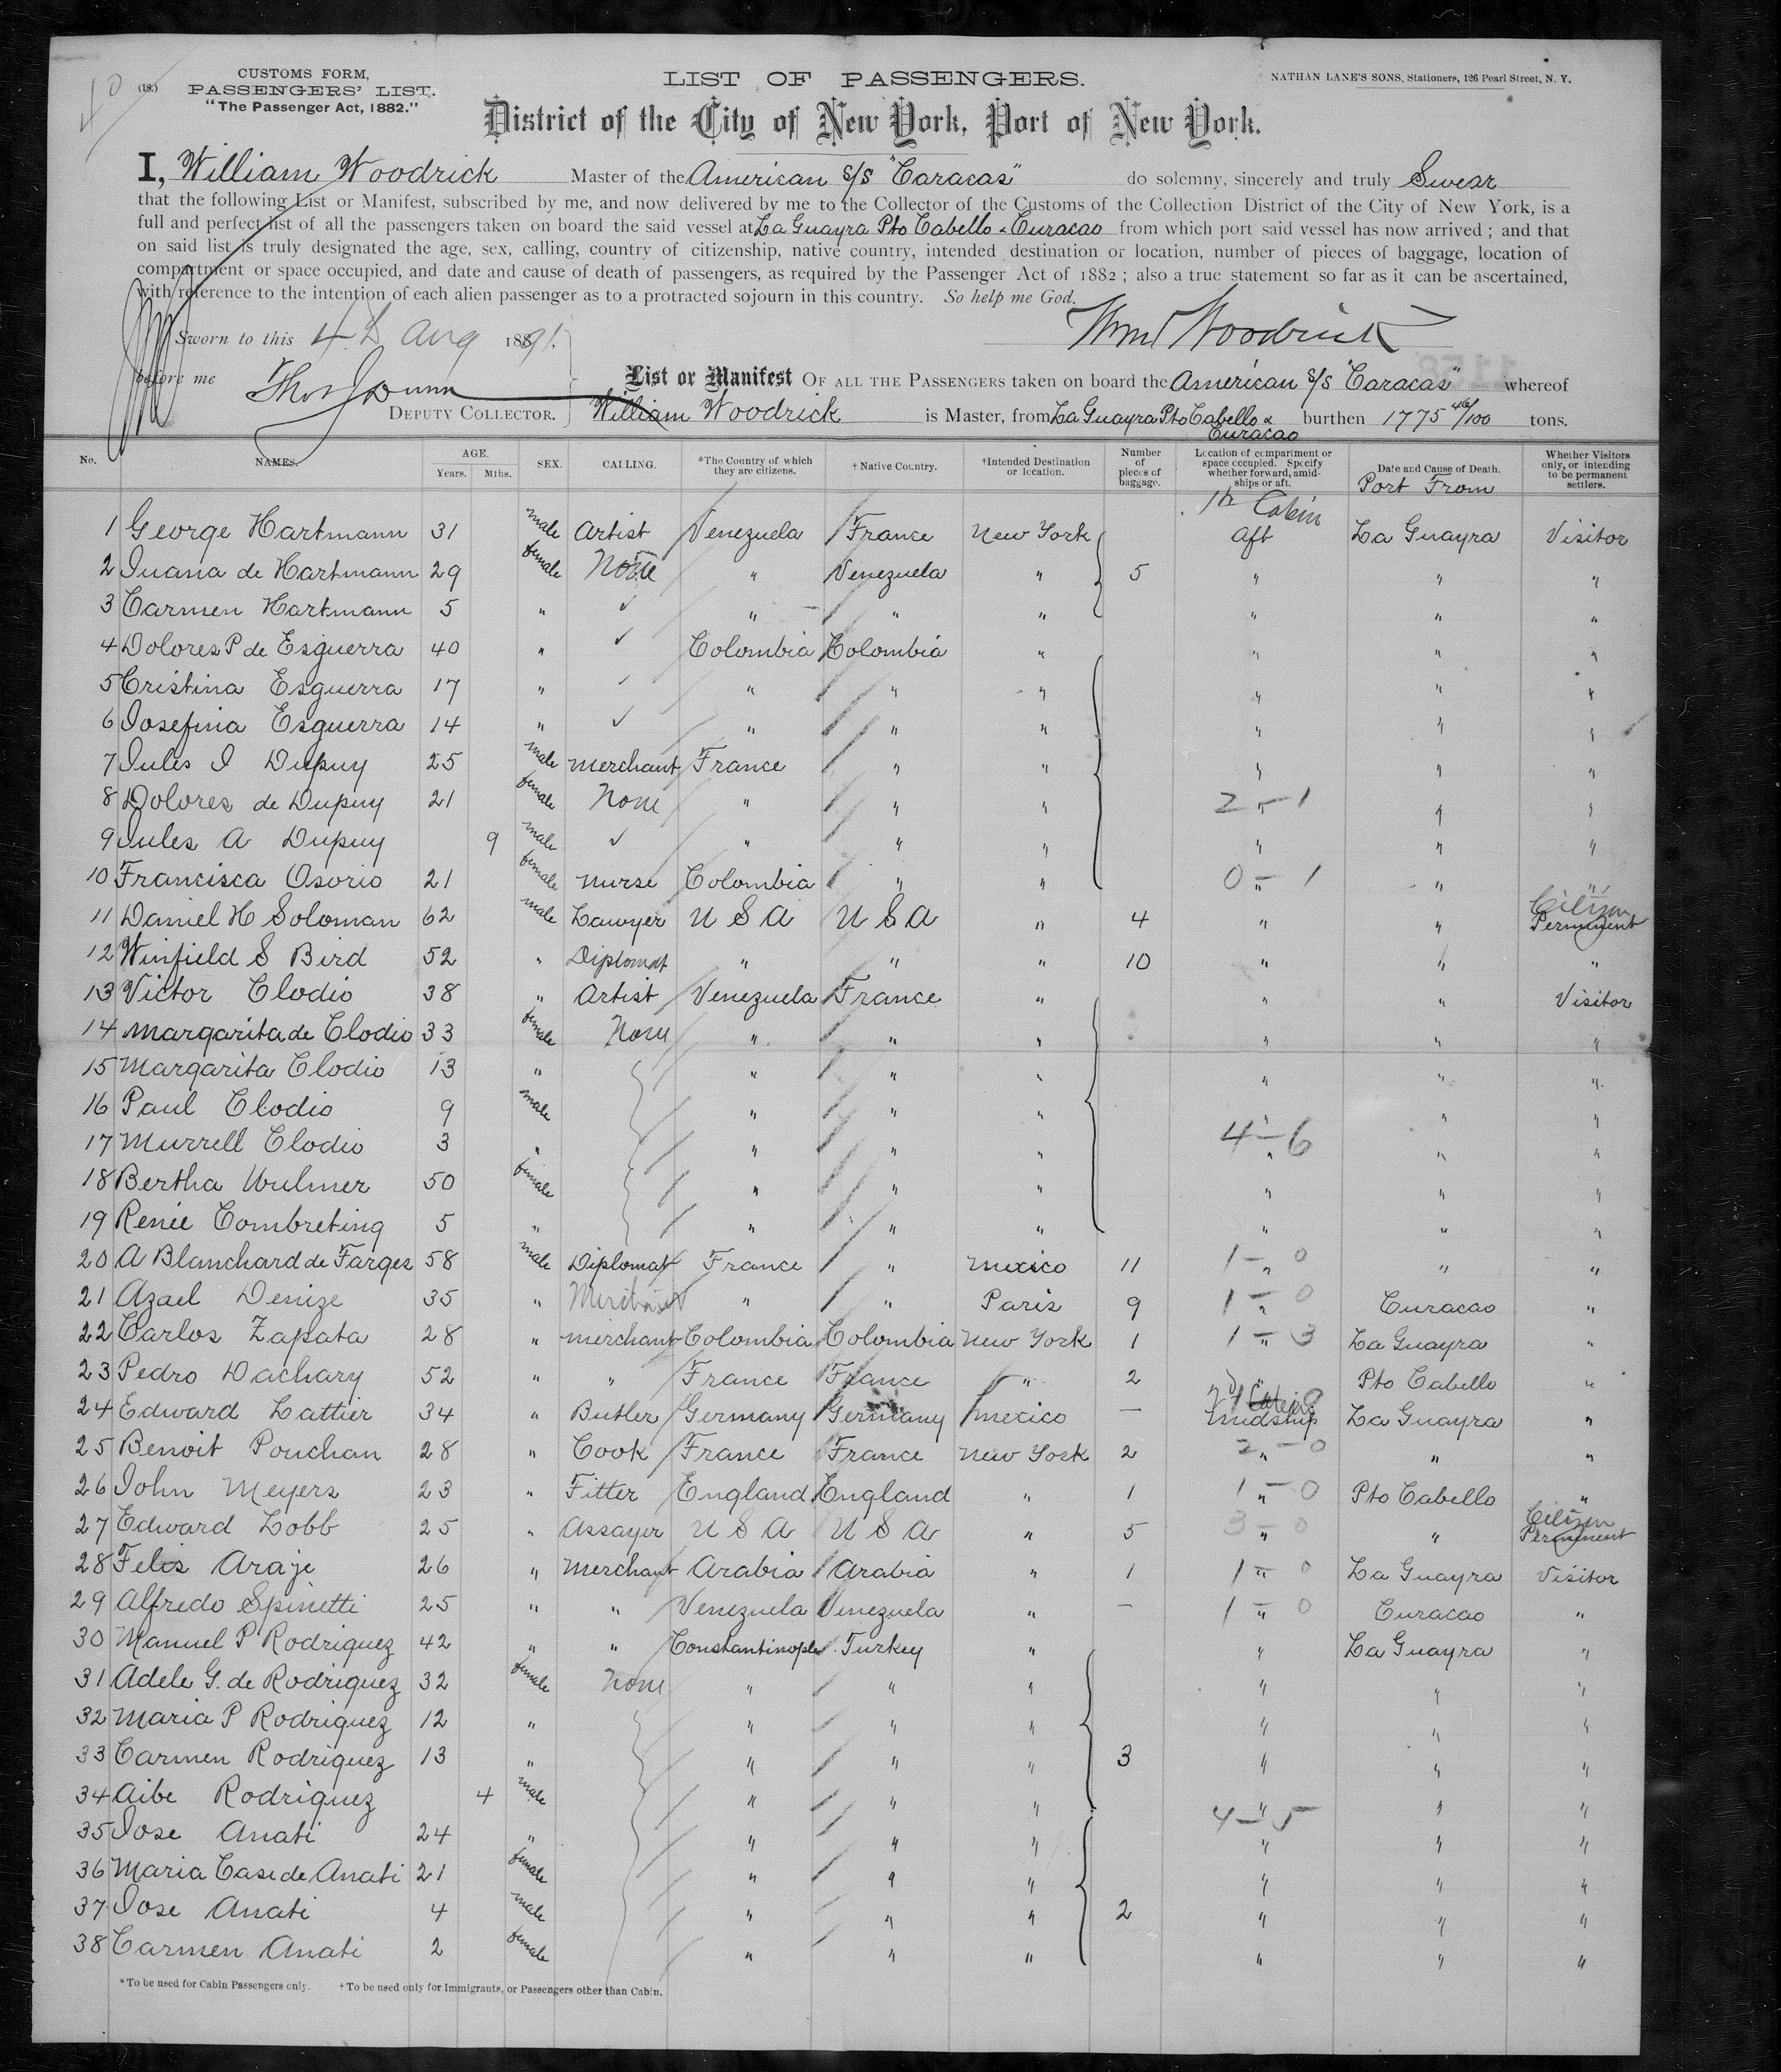 40
(18.) CUSTOMS FORM, PASSENGERS' LIST. "The Passenger Act, 1882."
LIST OF PASSENGERS.
NATHAN LANE'S SONS, Stationers, 126 Pearl Street, N. Y.
District of the City of New York, Port of New York.
I, William Woodrick Master of the American s/s "Caracas" do solemny, sincerely and truly Swear
that the following List or Manifest, subscribed by me, and now delivered by me to the Collector of the Customs of the Collection District of the City of New York, is a
full and perfect list of all the passengers taken on board the said vessel at La Guayra Pto Cabello & Curacao from which port said vessel has now arrived ; and that
on said list is truly designated the age, sex, calling, country of citizenship, native country, intended destination or location, number of pieces of baggage, location of
compartment or space occupied, and date and cause of death of passengers, as required by the Passenger Act of 1882 ; also a true statement so far as it can be ascertained,
with reference to the intention of each alien passenger as to a protracted sojourn in this country. So help me God.
Wm Woodrick
Sworn to this 4th Aug 1891.
before me Thos J Dunn
DEPUTY COLLECTOR.
List or Manifest OF ALL THE PASSENGERS taken on board the American s/s "Caracas" whereof
William Woodrick is Master, from La Guayra Pto Cabello & Curacao burthen 1775 46/100 tons.
No. NAMES. AGE. Years. Mths. SEX. CALLING. *The Country of which they are citizens. † Native Country. †Intended Destination or location. Number of pieces of baggage. Location of compartment or space occupied. Specify whether forward, amidships or aft. Date and Cause of Death. Port From Whether Visitors only, or intending to be permanent settlers.
1st Cabin
1 George Hartmann 31 male Artist Venezuela France New York aft La Guayra Visitor
2 Juana de Hartmann 29 female None " Venezuela " 5 " " "
3 Carmen Hartmann 5 " ✓ " " " " " "
4 Dolores P de Esguerra 40 " ✓ Colombia Colombia " " " "
5 Cristina Esguerra 17 " ✓ " " " " " "
6 Josefina Esguerra 14 " ✓ " " " " " "
7 Jules J Dupuy 25 male merchant France " " " " "
8 Dolores de Dupuy 21 female None " " " 2 - 1 " " "
9 Jules A Dupuy 9 male ✓ " " " " " "
10 Francisca Osorio 21 female nurse Colombia " " 0 - 1 " " "
11 Daniel H Soloman 62 male Lawyer U S A U S A " 4 " " Citizen Permanent
12 Winfield S Bird 52 " Diplomat " " " 10 " " "
13 Victor Clodio 38 " Artist Venezuela France " " " Visitor
14 Margarita de Clodio 33 female None " " " " " "
15 Margarita Clodio 13 " " " " " " "
16 Paul Clodio 9 male " " " " " "
17 Murrell Clodio 3 " " " " 4 - 6 " " "
18 Bertha Wulmer 50 female " " " " " "
19 Renée Combreting 5 " " " " " " "
20 A Blanchard de Farges 58 male Diplomat France " Mexico 11 1 - 0 " " "
21 Azael Denize 35 " " " Paris 9 1 - 0 " Curacao "
22 Carlos Zapata 28 " merchant Colombia Colombia New York 1 1 - 3 " La Guayra "
23 Pedro Dachary 52 " " France France " 2 " Pto Cabello "
2d Cabin
24 Edward Lattier 34 " Butler Germany Germany Mexico — midship La Guayra "
25 Benoit Pouchan 28 " Cook France France New York 2 2 - 0 " " "
26 John Meyers 23 " Fitter England England " 1 1 - 0 " Pto Cabello "
27 Edward Lobb 25 " Assayer U S A U S A " 5 3 - 0 " " Citizen Permanent
28 Felis Araje 26 " Merchant Arabia Arabia " 1 1 - 0 " La Guayra Visitor
29 Alfredo Spinetti 25 " " Venezuela Venezuela " — 1 - 0 " Curacao "
30 Manuel P Rodriguez 42 " " Constantinople Turkey " " La Guayra "
31 Adele G. de Rodriguez 32 female None " " " " " "
32 Maria P Rodriguez 12 " " " " " " "
33 Carmen Rodriguez 13 " " " " 3 " " "
34 Aibe Rodriguez 4 male " " " " " "
35 Jose Anati 24 " " " " 4 - 5 " " "
36 Maria Case de Anati 21 female " " " " " "
37 Jose Anati 4 male " " " 2 " " "
38 Carmen Anati 2 female " " " " " "
*To be used for Cabin Passengers only. †To be used only for Immigrants, or Passengers other than Cabin.